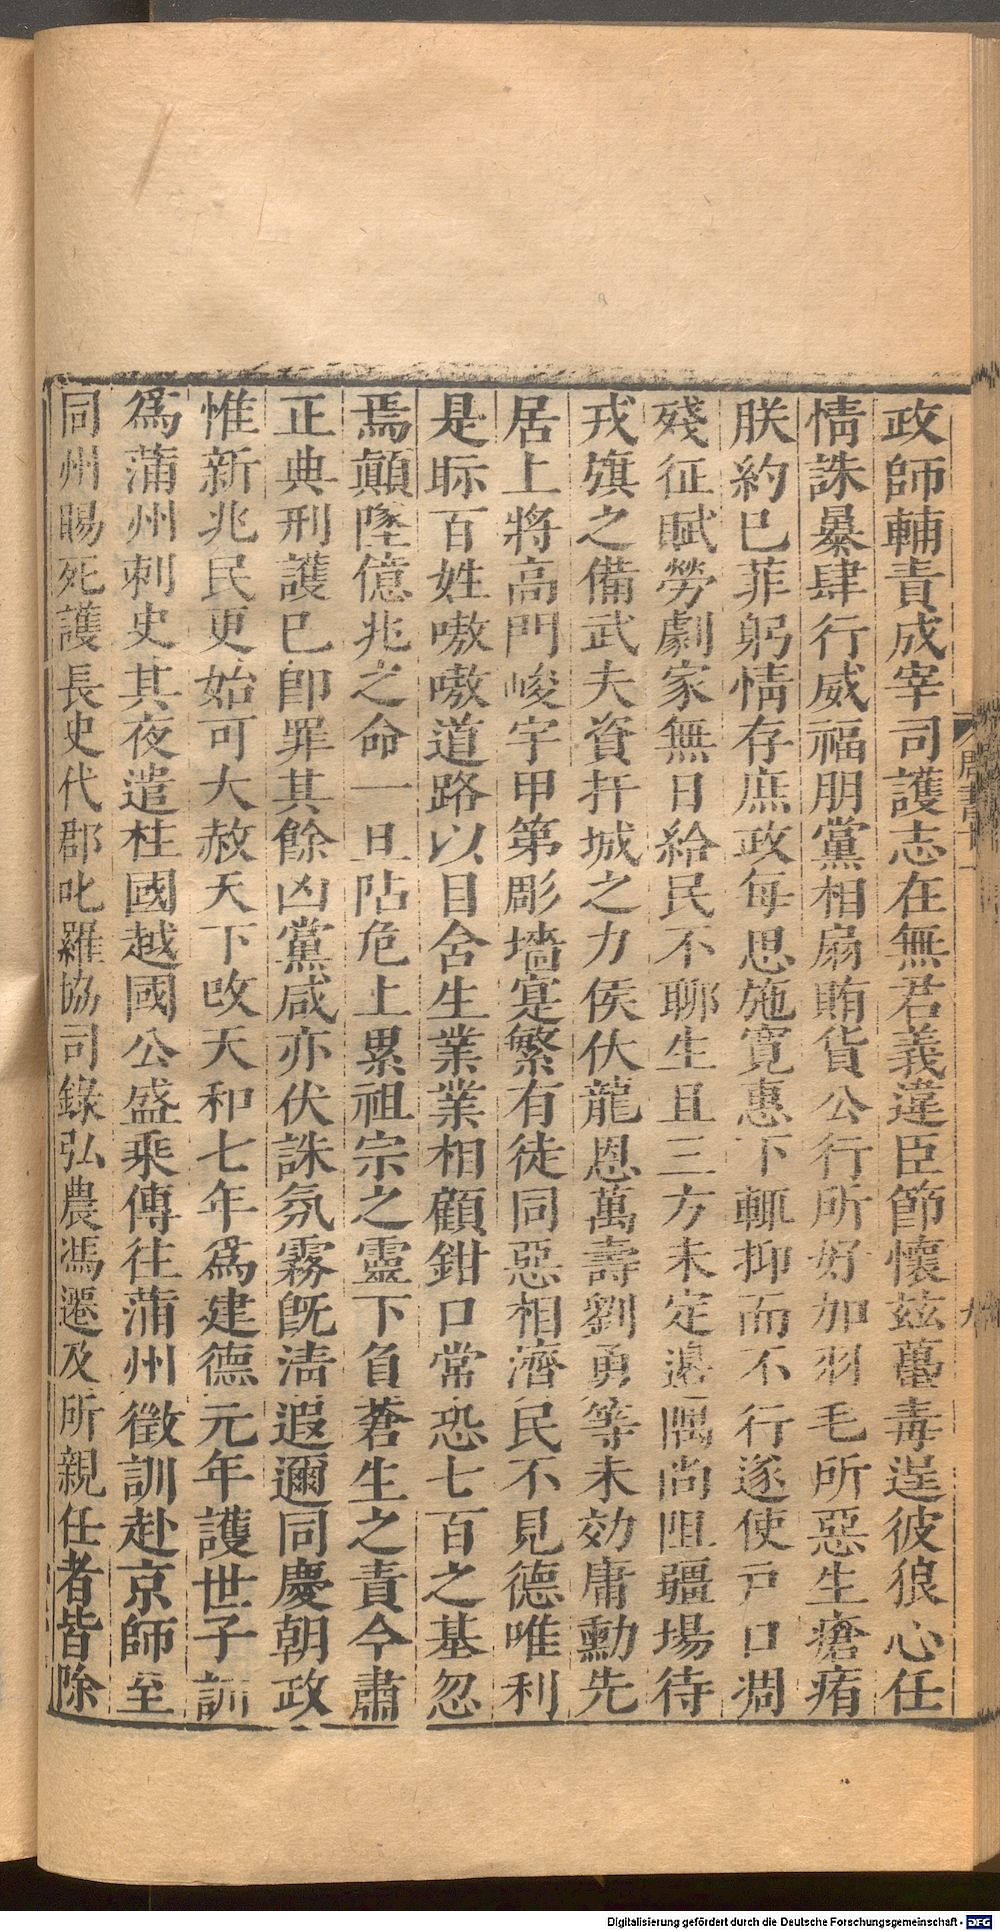 政師輔責成宰司護志在無君義違臣節懷茲蠆毒逞彼狼心任
情誅暴肆行威福朋黨相扇賄貨公行所好加羽毛所惡生瘡痏
朕約巳菲躬情存庶政每思施寬惠下輒抑而不行遂使戸口凋
殘征賦勞劇家無日給民不聊生且三方未定邊隅尚阻疆場待
戎旗之備武夫資扞城之力侯伏龍恩萬壽劉勇等未効庸勳先
居上將高門峻宇甲第彫墻寔繁有徒同惡相濟民不見德唯利
是眎百姓嗷嗷道路以目含生業業相顧鉗口常恐七百之基忽
焉顛墜億兆之命一旦阽危上累祖宗之靈下負蒼生之責今肅
正典刑護巳卽罪其餘凶黨咸亦伏誅氛霧旣淸遐邇同慶朝政
惟新兆民更始可大赦天下改天和七年爲建德元年護世子訓
爲蒲州刺史其夜遣柱國越國公盛乘傳往蒲州徵訓赴京師至
同州賜死護長史代郡叱羅協司錄弘農馮遷及所親任者皆除
周書
九
Digitalisierung gefördert durch die Deutsche Forschungsgemeinschaft - DFG